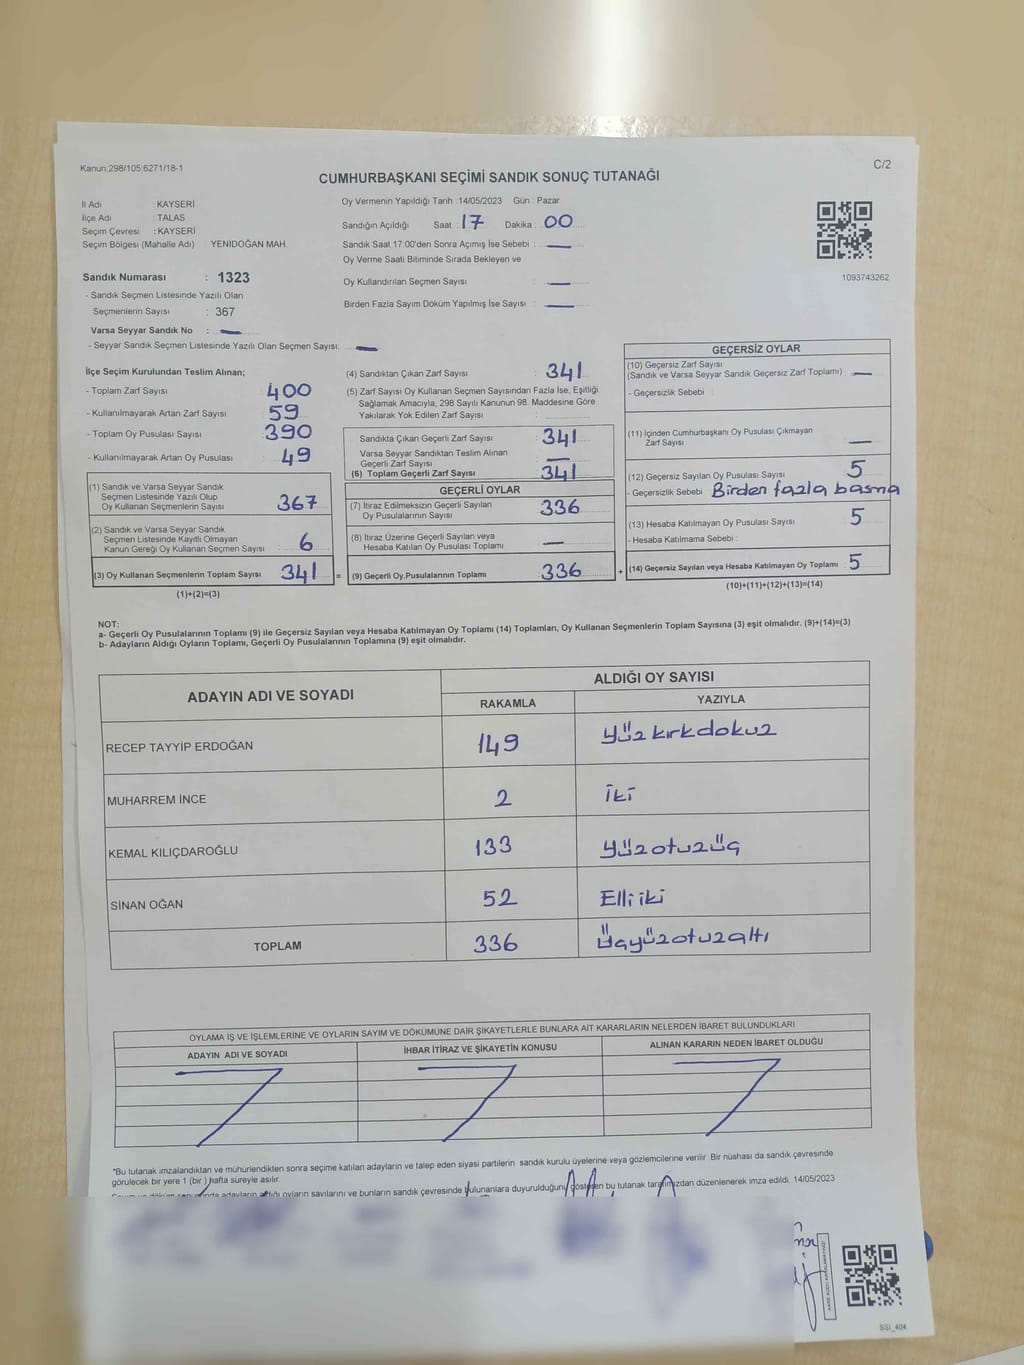 Kanun;298/105;6271/18-1
C/2
CUMHURBAŞKANI SEÇİMİ SANDIK SONUÇ TUTANAĞI
İl Adı KAYSERİ
İlçe Adı TALAS
Seçim Çevresi : KAYSERİ
Seçim Bölgesi (Mahalle Adı) : YENİDOĞAN MAH.
Sandık Numarası : 1323
- Sandık Seçmen Listesinde Yazılı Olan
Seçmenlerin Sayısı : 367
Varsa Seyyar Sandık No : —
- Seyyar Sandık Seçmen Listesinde Yazılı Olan Seçmen Sayısı: —
Oy Vermenin Yapıldığı Tarih :14/05/2023 Gün : Pazar
Sandığın Açıldığı Saat : 17 Dakika : 00
Sandık Saat 17:00'den Sonra Açımış İse Sebebi : —
Oy Verme Saati Bitiminde Sırada Bekleyen ve
Oy Kullandırılan Seçmen Sayısı : —
Birden Fazla Sayım Döküm Yapılmış İse Sayısı : —
1093743262
İlçe Seçim Kurulundan Teslim Alınan;
- Toplam Zarf Sayısı : 400
- Kullanılmayarak Artan Zarf Sayısı : 59
- Toplam Oy Pusulası Sayısı : 390
- Kullanılmayarak Artan Oy Pusulası : 49
(1) Sandık ve Varsa Seyyar Sandık
Seçmen Listesinde Yazılı Olup
Oy Kullanan Seçmenlerin Sayısı : 367
(2) Sandık ve Varsa Seyyar Sandık
Seçmen Listesinde Kayıtlı Olmayan
Kanun Gereği Oy Kullanan Seçmen Sayısı : 6
(3) Oy Kullanan Seçmenlerin Toplam Sayısı : 341 =
(1)+(2)=(3)
(4) Sandıktan Çıkan Zarf Sayısı : 341
(5) Zarf Sayısı Oy Kullanan Seçmen Sayısından Fazla İse, Eşitliği
Sağlamak Amacıyla, 298 Sayılı Kanunun 98. Maddesine Göre
Yakılarak Yok Edilen Zarf Sayısı :
Sandıkta Çıkan Geçerli Zarf Sayısı : 341
Varsa Seyyar Sandıktan Teslim Alınan
Geçerli Zarf Sayısı : —
(6) Toplam Geçerli Zarf Sayısı : 341
GEÇERLİ OYLAR
(7) İtiraz Edilmeksizin Geçerli Sayılan
Oy Pusulalarının Sayısı : 336
(8) İtiraz Üzerine Geçerli Sayılan veya
Hesaba Katılan Oy Pusulası Toplamı : —
(9) Geçerli Oy.Pusulalarının Toplamı : 336 +
GEÇERSİZ OYLAR
(10) Geçersiz Zarf Sayısı
(Sandık ve Varsa Seyyar Sandık Geçersiz Zarf Toplamı) : —
- Geçersizlik Sebebi :
(11) İçinden Cumhurbaşkanı Oy Pusulası Çıkmayan
Zarf Sayısı : —
(12) Geçersiz Sayılan Oy Pusulası Sayısı : 5
- Geçersizlik Sebebi : Birden fazla basma
(13) Hesaba Katılmayan Oy Pusulası Sayısı : 5
- Hesaba Katılmama Sebebi :
(14) Geçersiz Sayılan veya Hesaba Katılmayan Oy Toplamı : 5
(10)+(11)+(12)+(13)=(14)
NOT:
a- Geçerli Oy Pusulalarının Toplamı (9) ile Geçersiz Sayılan veya Hesaba Katılmayan Oy Toplamı (14) Toplamları, Oy Kullanan Seçmenlerin Toplam Sayısına (3) eşit olmalıdır. (9)+(14)=(3)
b- Adayların Aldığı Oyların Toplamı, Geçerli Oy Pusulalarının Toplamına (9) eşit olmalıdır.
ADAYIN ADI VE SOYADI
ALDIĞI OY SAYISI
RAKAMLA YAZIYLA
RECEP TAYYİP ERDOĞAN 149 yüz kırkdokuz
MUHARREM İNCE 2 İki
KEMAL KILIÇDAROĞLU 133 yüzotuzüç
SİNAN OĞAN 52 Elli iki
TOPLAM 336 Üçyüzotuzaltı
OYLAMA İŞ VE İŞLEMLERİNE VE OYLARIN SAYIM VE DÖKÜMÜNE DAİR ŞİKAYETLERLE BUNLARA AİT KARARLARIN NELERDEN İBARET BULUNDUKLARI
ADAYIN ADI VE SOYADI İHBAR İTİRAZ VE ŞİKAYETİN KONUSU ALINAN KARARIN NEDEN İBARET OLDUĞU
*Bu tutanak imzalandıktan ve mühürlendikten sonra seçime katılan adayların ve talep eden siyasi partilerin sandık kurulu üyelerine veya gözlemcilerine verilir. Bir nüshası da sandık çevresinde
görülecek bir yere 1 (bir) hafta süreyle asılır.
adayların aldığı oyların sayılarını ve bunların sandık çevresinde bulunanlara duyurulduğunu gösteren bu tutanak tarafımızdan düzenlenerek imza edildi. 14/05/2023
SSI_404